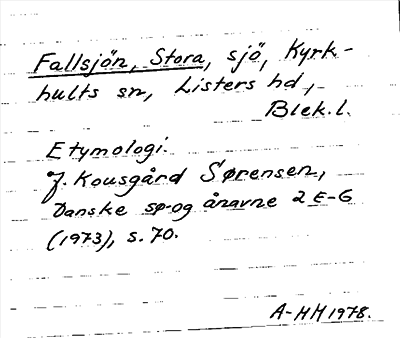 Fallsjön, Stora, sjö, Kyrk-
hults sn, Listers hd,
Blek.l.
Etymologi.
J. Kousgård Sørensen,
Danske sø-og ånavne 2 E-G
(1973), s. 70.
A-HH 1978.